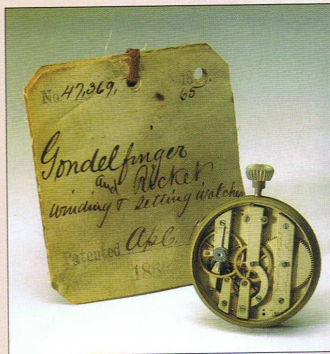 No. 47,369,
65
Gondelfinger
and Ricket
winding & setting watches
Patented Apl
188